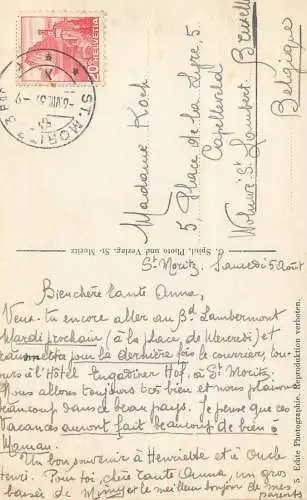 HELVETIA
ST. MORITZ 3
Madame Koch
5, Place de la Lyre, 5
Capelleveld
Woluwé-St Lambert Bruxelles
Belgique
G. Spinl, Photo und Verlag, St. Moritz
Echte Photographie. Reproduktion verboten.
St Moritz, Samedi 5 Août
Bien chère tante Anna,
Veux-tu encore aller au Bd. Lambermont
Mardi prochain (à la place de Mercredi) et
pour la dernière fois le courrier, tou-
jours à l'Hôtel Engadiner Hof, à St Moritz.
Nous allons toujours très bien et nous plaisons
beaucoup dans ce beau pays. Je pense que ces
vacances auront fait beaucoup de bien à
Maman.
Un bon souvenir à Henriette et à Oncle
Henri. Pour toi, chère tante Anna, un gros
baiser de Mimy et le meilleur bonjour de mes